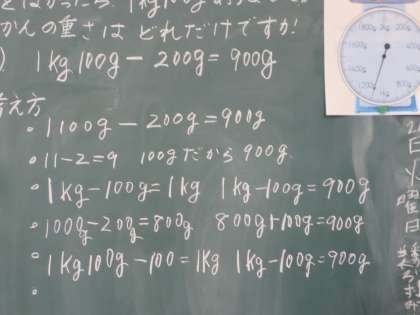 をはかったら 1kg100g
かんの重さは どれだけですか!
) 1kg100g － 200g = 900g
考え方
・1100g － 200g = 900g
・11－2=9 100gだから 900g
・1kg－100g=1kg 1kg－100g=900g
・1000g－200g=800g 800g+100g=900g
・1kg100g－100=1kg 1kg－100g=900g
・
日
火
曜
日